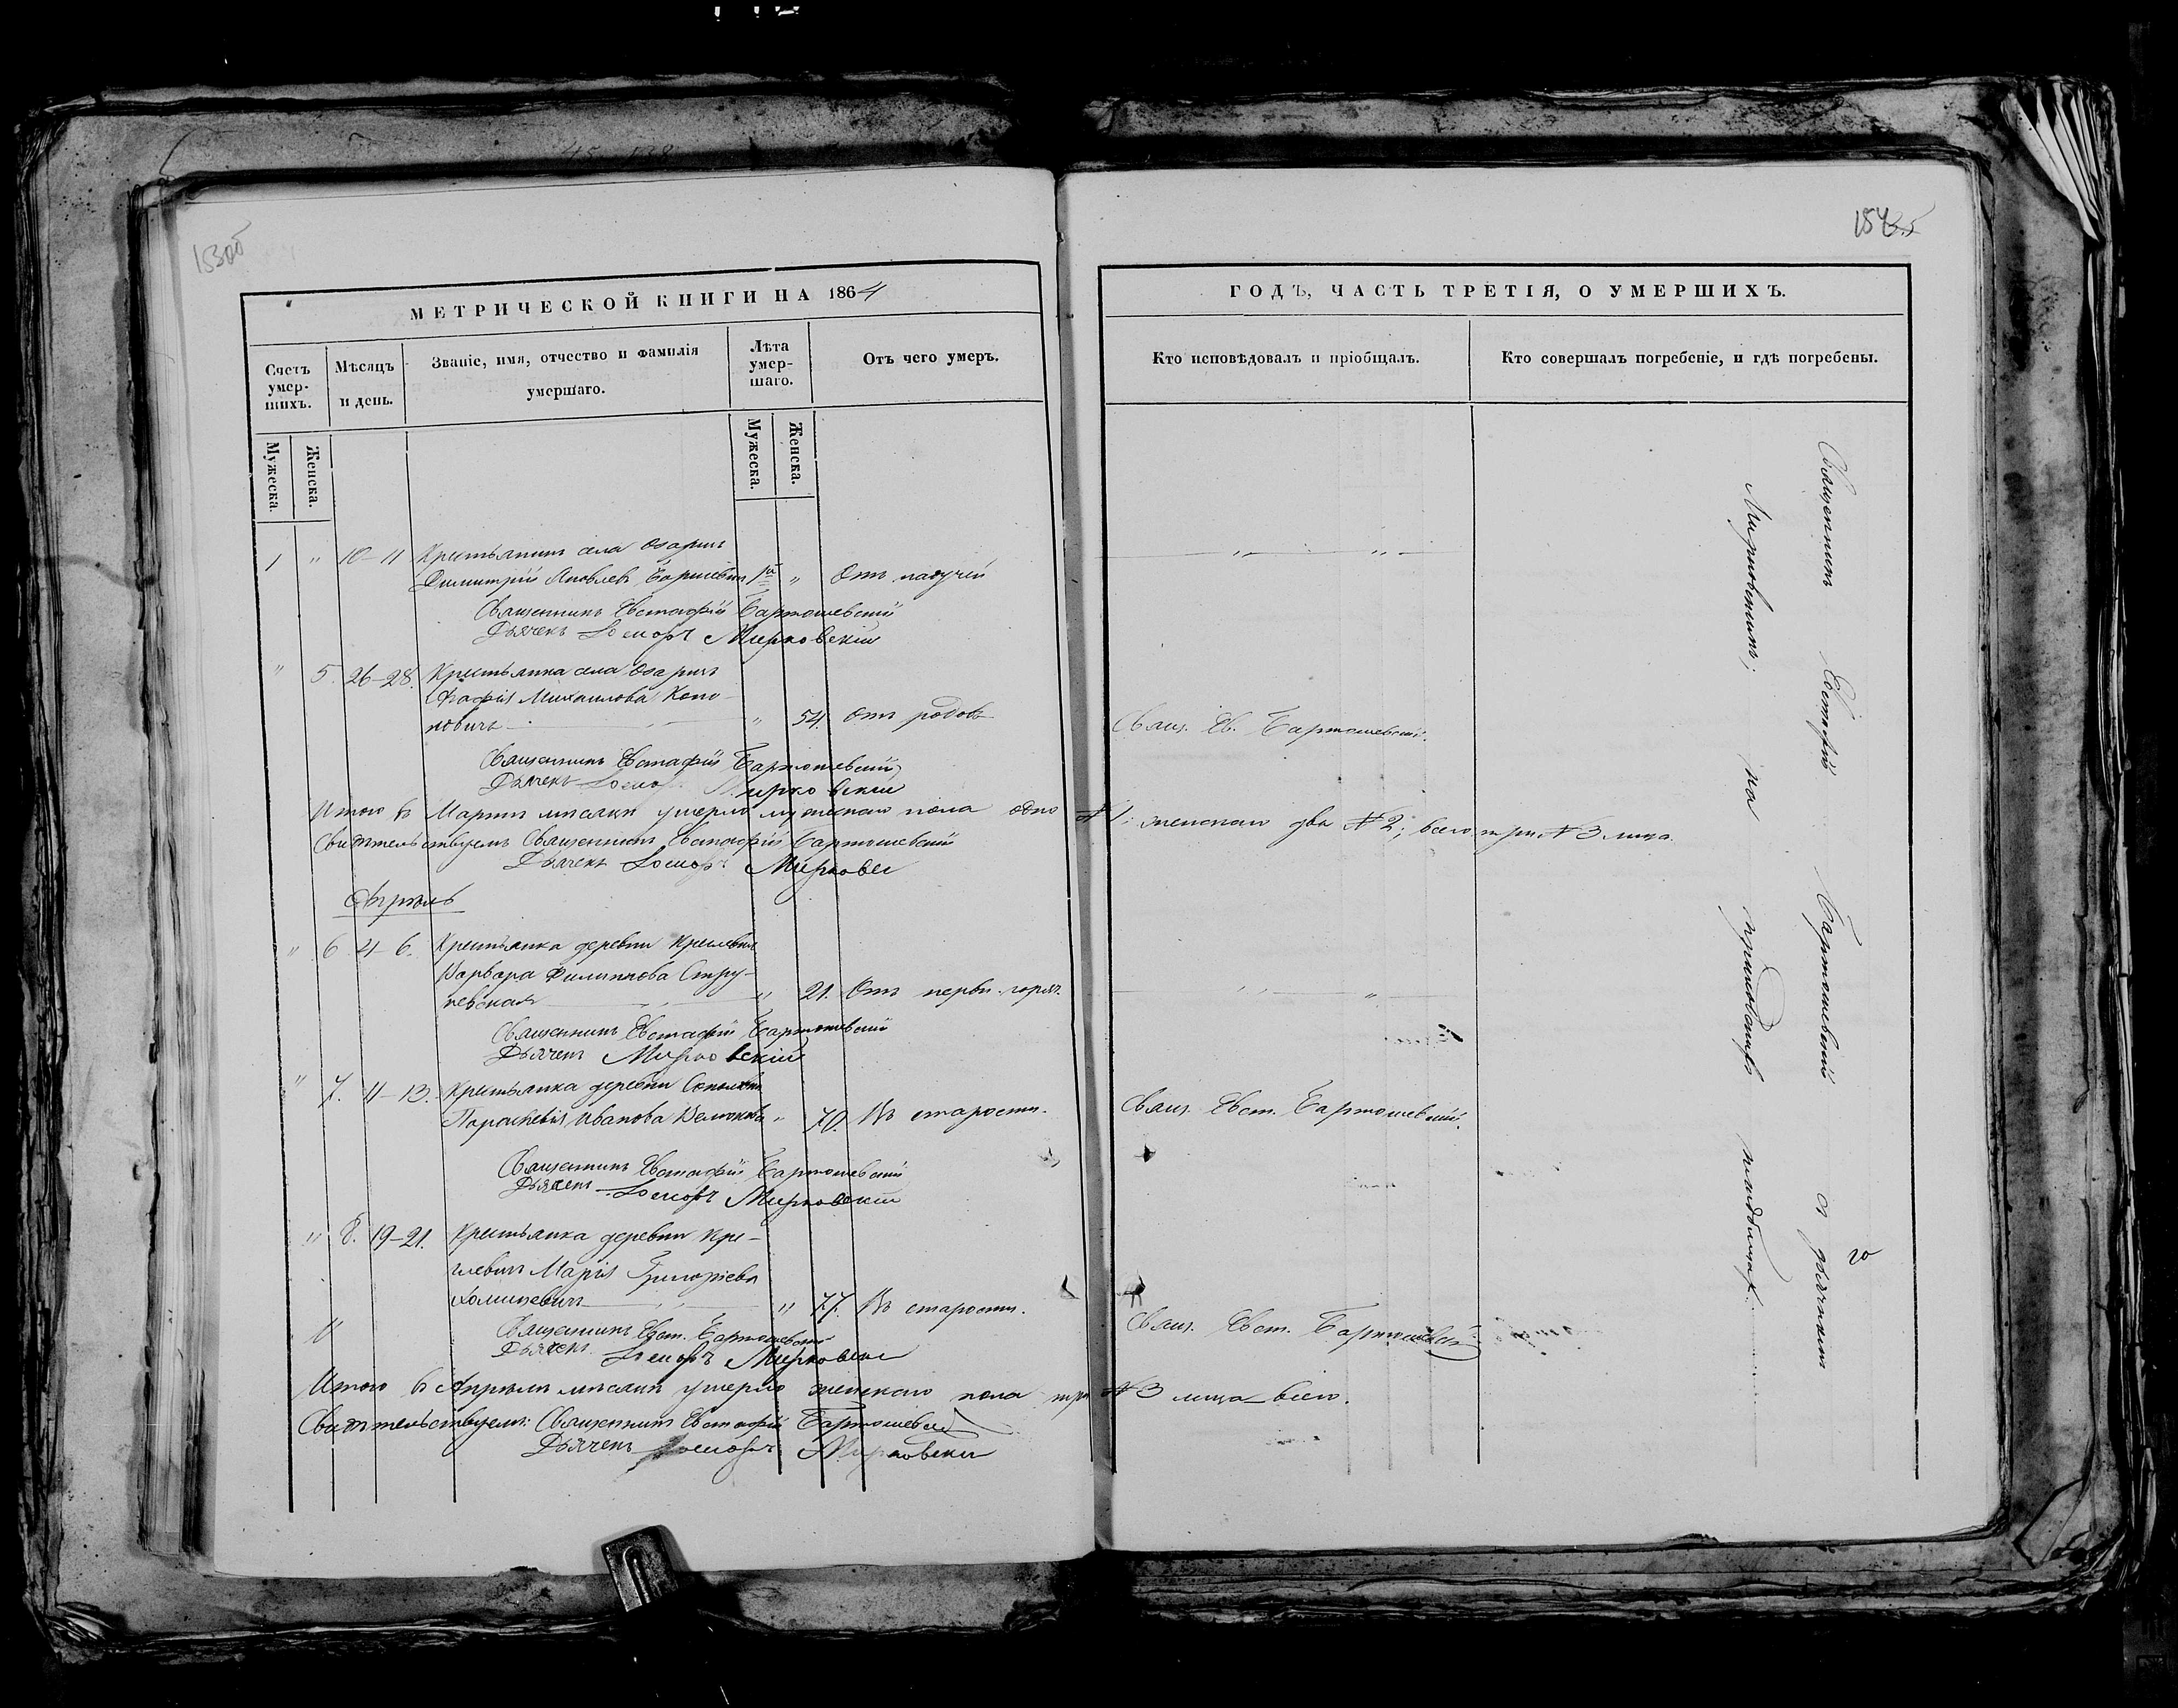 МЕТРИЧЕСКОЙ КНИГИ НА 1864
Счетъ умер-шихъ.
Мѣсяцъ и день.
Званіе, имя, отчество и фамилія умершаго.
Лѣта умер-шаго.
Отъ чего умеръ.
Мужеска.
Женска.
Мужеска.
Женска.
1 " 10–11 Крестьянинъ села Озаричъ
Димитрій Яковлевъ " Отъ падучей
Священникъ Евстафій Бартошевскій
Дьячекъ Мирковскій
" 5. 26–28. Крестьянка села Озаричъ
Михаилова Коно-
новичъ " 54. Отъ родовъ
Священникъ Евстафій Бартошевскій
Дьячекъ Мирковскій
Итого въ Мартѣ мѣсяцѣ умерло мужескаго пола одно
Свидѣтельствуемъ Священникъ Евстафій Бартошевскій
Дьячекъ Мирковск
Апрѣль
" 6 4–6. Крестьянка деревни
Варвара Филиппова Стру-
невская " 21. Отъ нервн. горяч.
Священникъ Евстафій Бартошевскій
Дьячекъ Мирковскій
" 7. 11–13. Крестьянка деревни
Параскевія Иванова " 70. Въ старости.
Священникъ Евстафій Бартошевскій
Дьячекъ Мирковскій
" 8. 19–21. Крестьянка деревни Кри-
Марія Григоріева
" 77. Въ старости.
Священникъ Евст. Бартошевскій
Дьячекъ Мирковск
Итого въ Апрѣлѣ мѣсяцѣ умерло женскаго пола три
Свидѣтельствуемъ: Священникъ Евстафій Бартошевск
Дьячекъ Мирковски
ГОДЪ, ЧАСТЬ ТРЕТІЯ, О УМЕРШИХЪ.
Кто исповѣдовалъ и пріобщалъ.
Кто совершалъ погребеніе, и гдѣ погребены.
" "
Свящ. Ев. Бартошевскій.
№ 1: женскаго два № 2; всего три № 3 лица.
" "
Свящ. Евст. Бартошевскій.
Свящ. Евст. Бартошевскій
№ 3 лица всего.
Священникъ Евстафій Бартошевскій съ дьячкомъ
Мирковскимъ, на приходскомъ кладбищѣ.